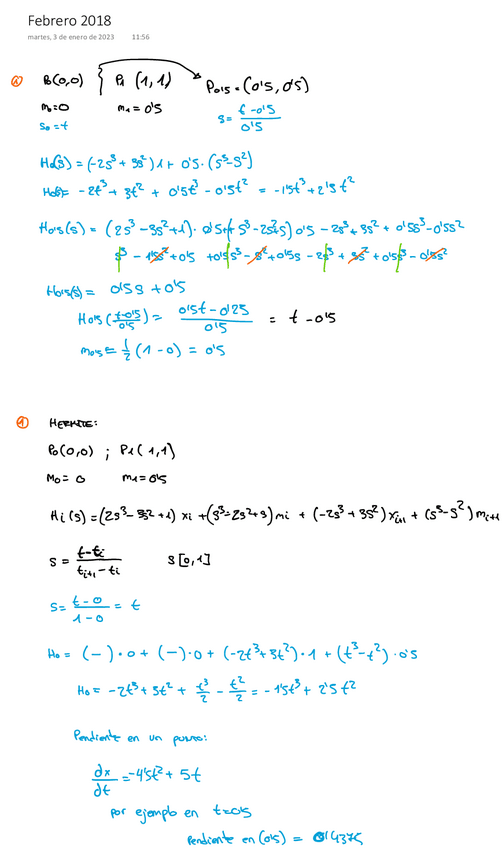 Febrero 2018
martes, 3 de enero de 2023 11:56
① P₀(0,0) { P₁ (1,1) P₀'₅ = (0'5, 0'5)
m₀=0 m₁=0'5
s₀=t s= (t-0'5)/0'5
H₀(s) = (-2s³+3s²)1+ 0'5·(s³-s²)
H₀(s)= -2t³+3t² + 0'5t³ - 0'5t² = -1'5t³+2'5t²
H₀'₅(s) = (2s³-3s²+1)·0'5+(s³-2s²+s)0'5 -2s³+3s² + 0'5s³-0'5s²
s³ - 1'5s² +0'5 +0'5s³ - s² +0'5s - 2s³ + 3s² +0'5s³ - 0'5s²
H₀'₅(s) = 0'5s + 0'5
H₀'₅((t-0'5)/0'5) = (0'5t-0'25)/0'5 = t - 0'5
m₀'₅ = 1/2 (1-0) = 0'5
① HERMITE:
P₀(0,0) ; P₁(1,1)
M₀= 0 m₁=0'5
Hᵢ(s) = (2s³-3s²+1) xᵢ +(s³-2s²+s)mᵢ + (-2s³+3s²)xᵢ₊₁ + (s³-s²)mᵢ₊₁
s = (t-tᵢ)/(tᵢ₊₁-tᵢ) s[0,1]
s= (t-0)/(1-0) = t
H₀ = (-)·0 + (-)·0 + (-2t³+3t²)·1 + (t³-t²)·0'5
H₀= -2t³+3t² + t³/2 - t²/2 = -1'5t³+2'5t²
Pendiente en un punto:
dx/dt =-4'5t²+5t
por ejemplo en t=0'5
Pendiente en (0'5) = 0'4375